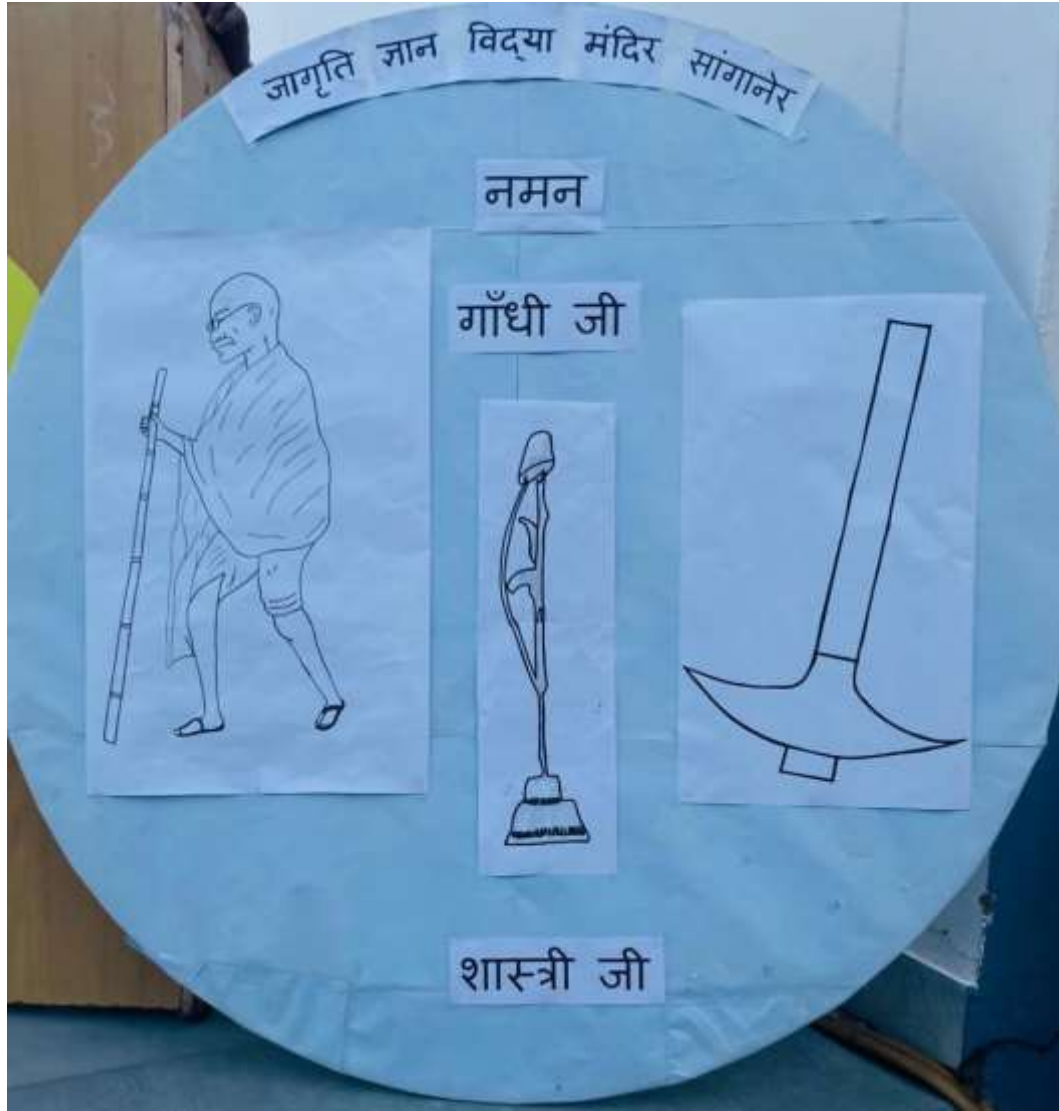 जागृति ज्ञान विद्‌या मंदिर सांगानेर
नमन
गाँधी जी
शास्त्री जी